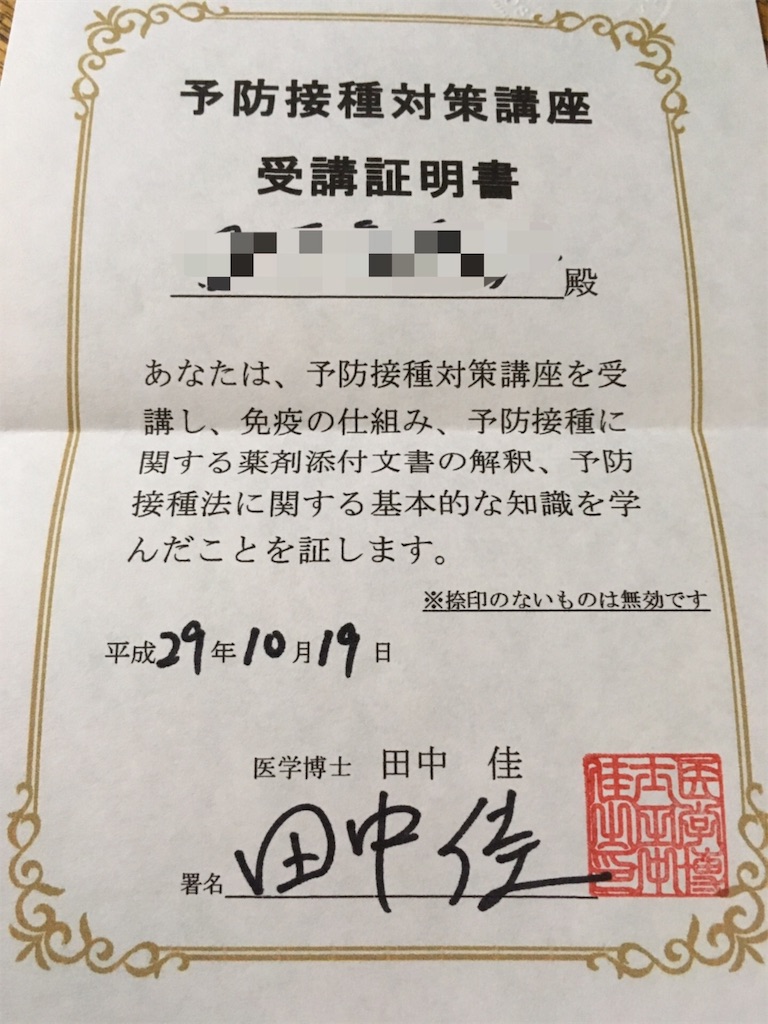 予防接種対策講座
受講証明書
殿
あなたは、予防接種対策講座を受
講し、免疫の仕組み、予防接種に
関する薬剤添付文書の解釈、予防
接種法に関する基本的な知識を学
んだことを証します。
※捺印のないものは無効です
平成29年10月19日
医学博士 田中 佳
署名 田中佳
医学博士田中佳之印